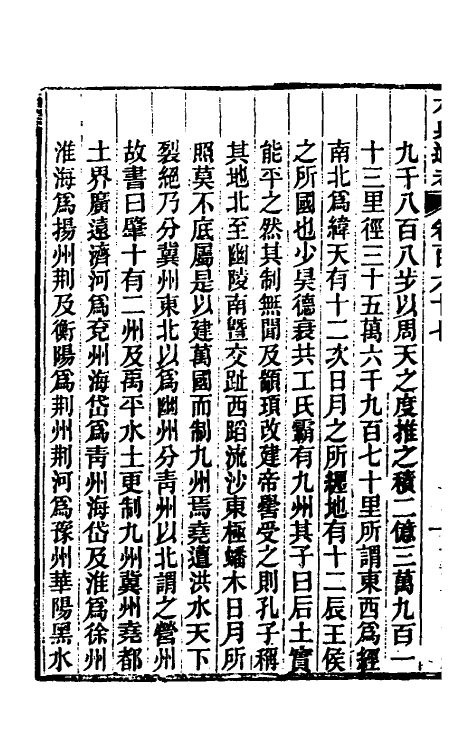 卷百六十七
九千八百八步以周天之度推之積二億三萬九百一
十三里徑三十五萬六千九百七十里所謂東西爲經
南北爲緯天有十二次日月之所纏地有十二辰王侯
之所國也少昊德衰共工氏霸有九州其子曰后土實
能平之然其制無聞及顓頊改建帝嚳受之則孔子稱
其地北至幽陵南暨交趾西蹈流沙東極蟠木日月所
照莫不底屬是以建萬國而制九州焉堯遭洪水天下
裂絕乃分冀州東北以爲幽州分靑州以北謂之營州
故書曰肇十有二州及禹平水土更制九州冀州堯都
土界廣遠濟河爲兗州海岱爲靑州海岱及淮爲徐州
淮海爲揚州荆及衡陽爲荆州荆河爲豫州華陽黑水